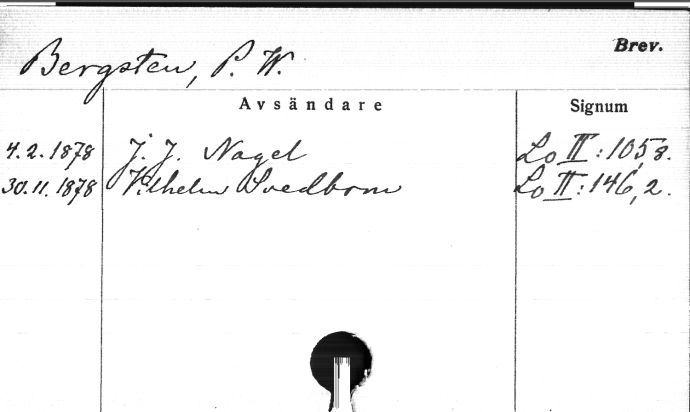 Brev.
Bergsten, P. W.
Avsändare Signum
4.2.1878 J. J. Nagel Lo II:105,8.
30.11.1878 Vilhelm Svedbom Lo II:146,2.